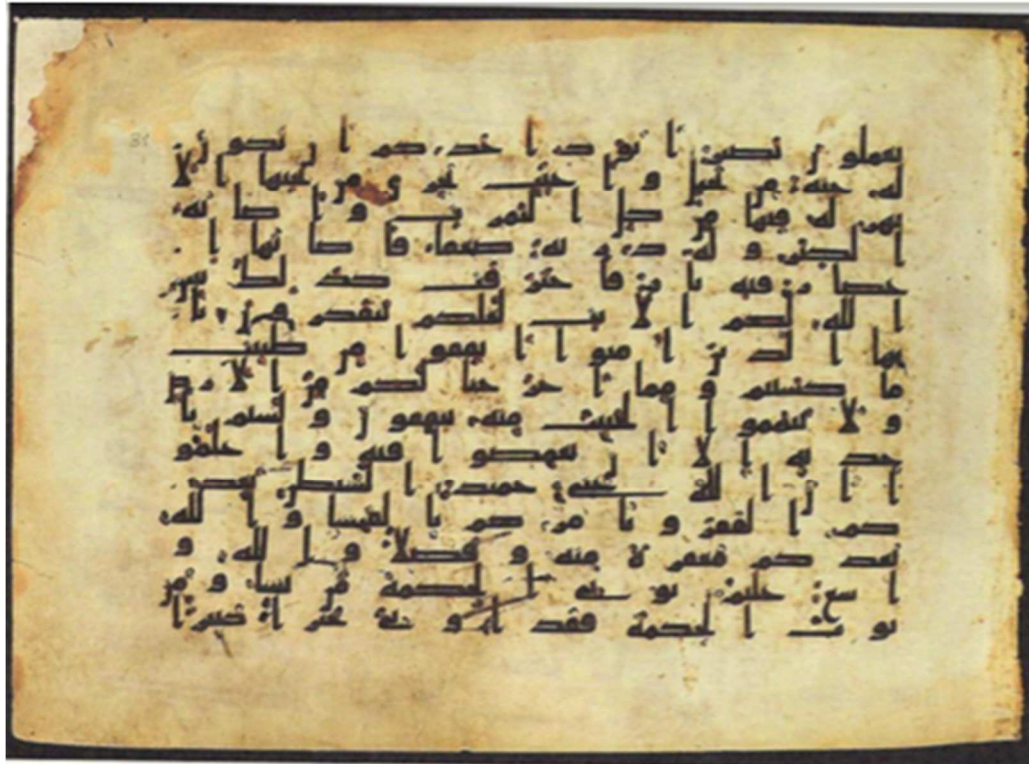 تعملون بصير ايود احدكم ان تكون
له جنة من نخيل واعنب تجري من تحتها الا
نهر له فيها من كل الثمرت واصابه
الكبر وله ذرية ضعفا فاصابها ا
عصار فيه نار فاحترقت كذلك يبين
الله لكم الايت لعلكم تتفكرون يا
يها الذين امنوا انفقوا من طيبت
ما كسبتم ومما اخرجنا لكم من الارض
ولا تيمموا الخبيث منه تنفقون ولستم با
خذيه الا ان تغمضوا فيه واعلموا
ان الله غني حميد الشيطن يعد
كم الفقر ويامركم بالفحشا والله
يعدكم مغفرة منه وفضلا والله و
اسع عليم يوتي الحكمة من يشا ومن
يوت الحكمة فقد اوتي خيرا كثيرا